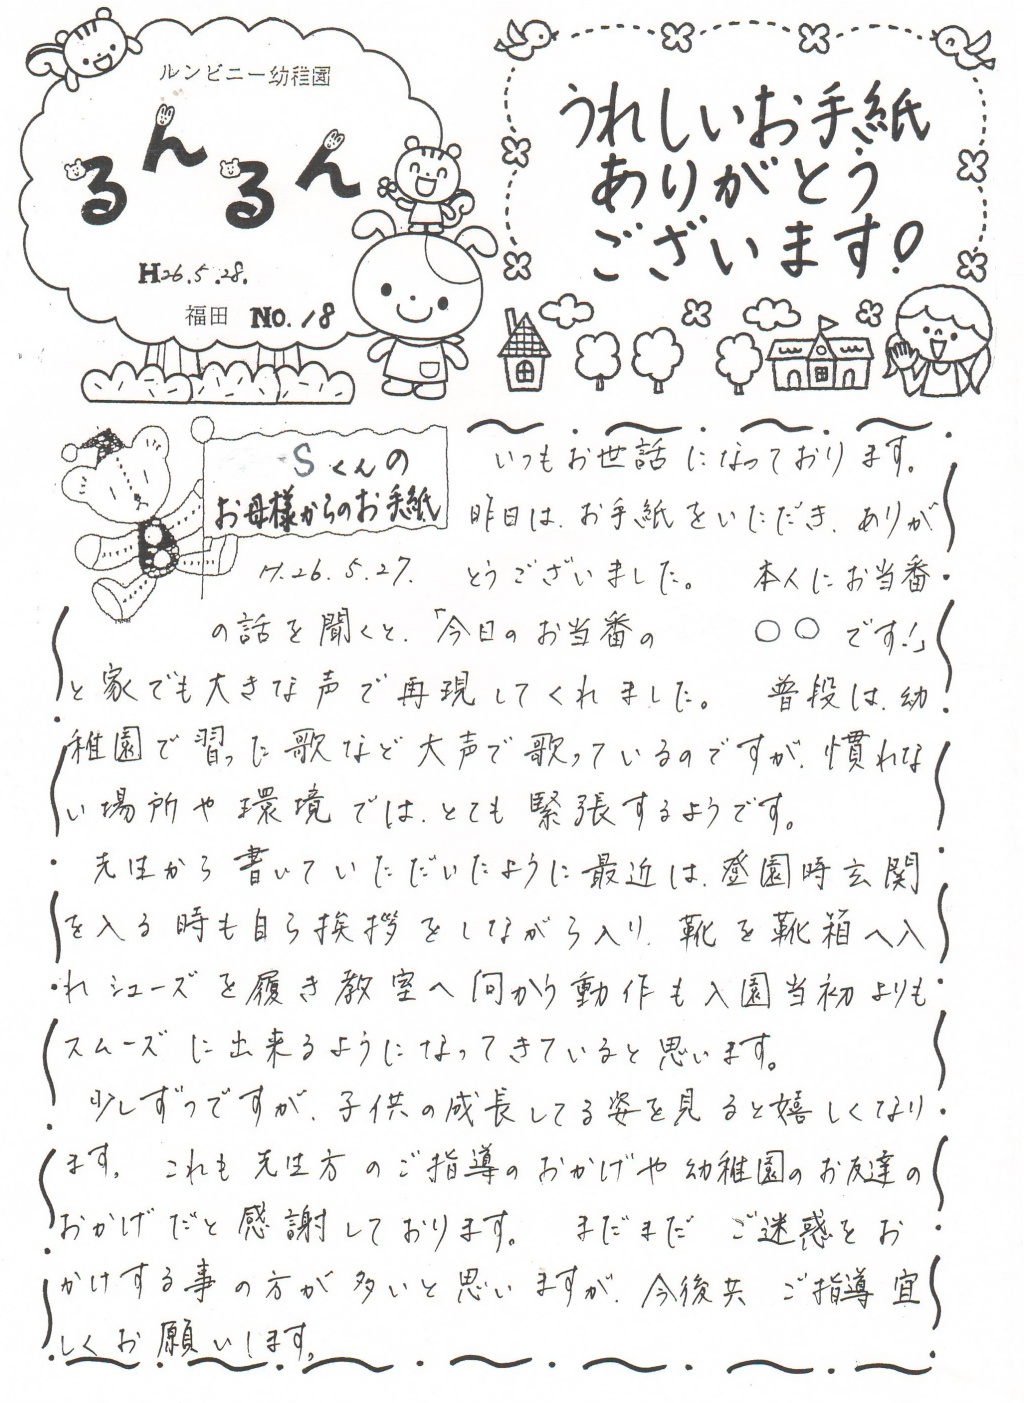 ルンビニー幼稚園
るんるん
H26.5.28.
福田 No.18
うれしいお手紙
ありがとう
ございます!
Sくんの
お母様からのお手紙
H.26.5.27.
いつもお世話になっております。
昨日は、お手紙をいただき、ありが
とうございました。 本人にお当番
の話を聞くと、「今日のお当番の ○○です!」
と家でも大きな声で再現してくれました。 普段は、幼
稚園で習った歌など大声で歌っているのですが、慣れな
い場所や環境では、とても緊張するようです。
先生から書いていただいたように最近は、登園時玄関
を入る時も自ら挨拶をしながら入り、靴を靴箱へ入
れシューズを履き教室へ何から動作も入園当初よりも
スムーズに出来るようになってきていると思います。
少しずつですが、子供の成長してる姿を見ると嬉しくなり
ます。 これも先生方のご指導のおかげや幼稚園のお友達の
おかげだと感謝しております。 まだまだ ご迷惑をお
かけする事の方が多いと思いますが、今後共 ご指導宜
しくお願いします。